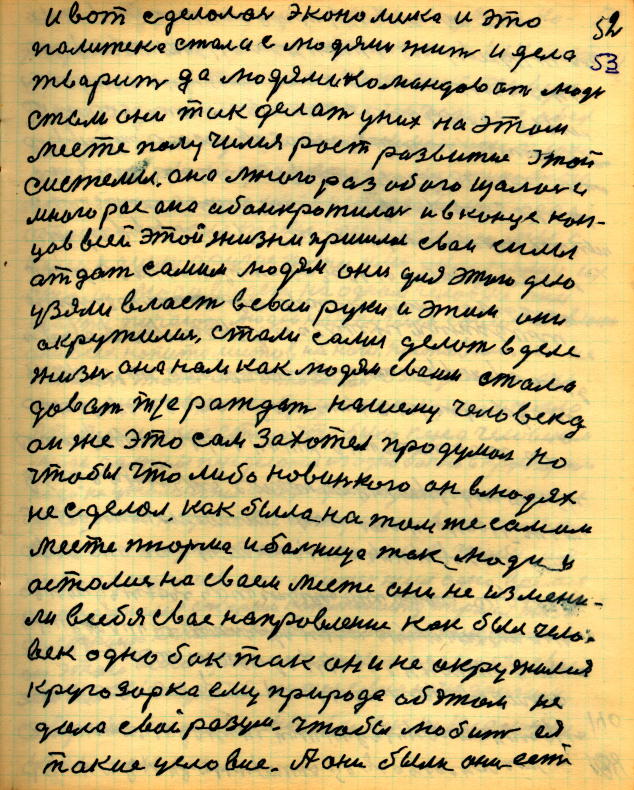 и вот сделалас экономика и это
политека стали с людями жит и дела
тварит да людями командоват люди
стали они так делат у них на этом
месте получился рост развитие этой
системы. она много раз обогощалас и
много рас она обанкротилас и в конце кон-
цов всей этой жизни пришли сваи силы
атдат самим людям они для этого дело
узяли власт в сваи руки и этим они
окружилис, стали сами делат в деле
жизн она нам как людям сваим стала
дават т/е раждат нашему человеку
он же это сам захотел продумал но
чтобы что либо новинкого он в людях
не сделал. как была на том же самам
месте тюрма и балница так люди и
асталис на сваем месте они не измени-
ли в себя свае направление как был чело-
век одно бак так они не окружилис
кругозорка ему природа об этом не
дала свай разум. чтобы любит ея
такие условие. А они были они есть
52
53